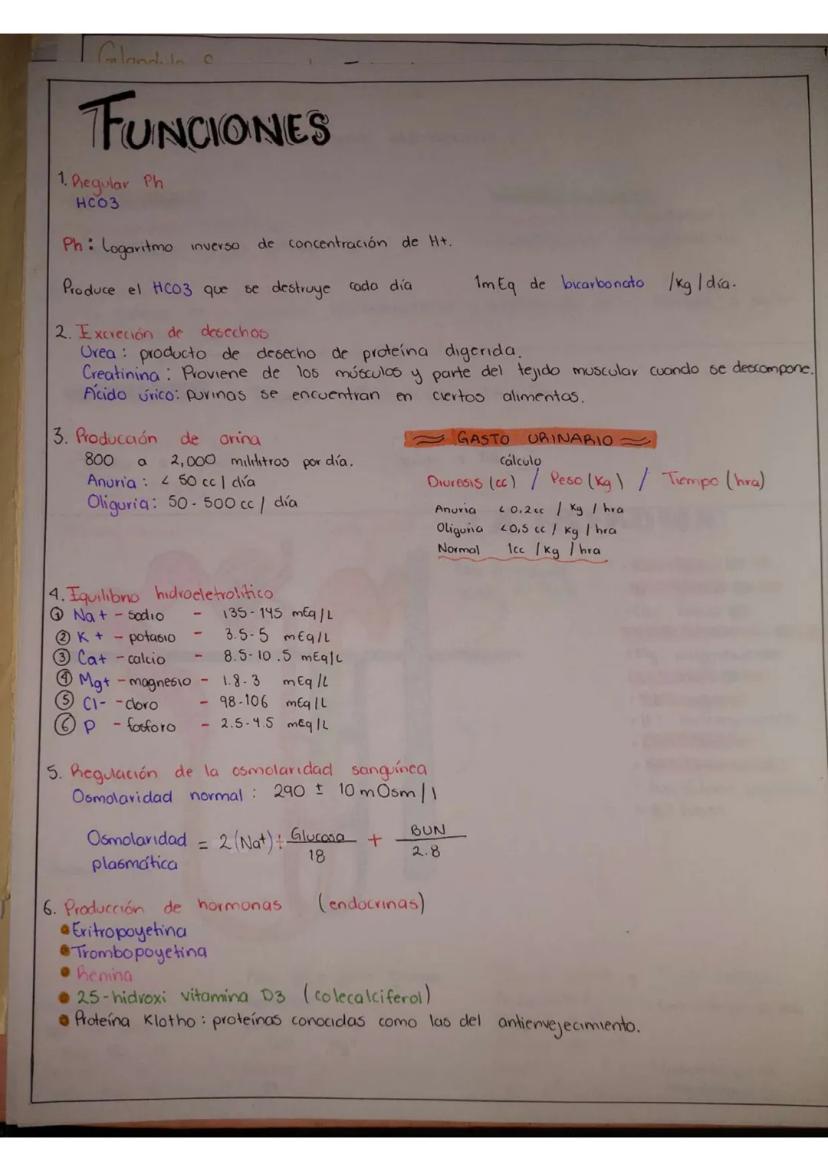 Glandula S
FUNCIONES
1. Regular Ph
HCO3
Ph: Logaritmo inverso de concentración de H+.
Produce el HCO3 que se destruye cada día 1mEq de bicarbonato /kg/día.
2. Excreción de desechos
Urea: producto de desecho de proteína digerida.
Creatinina: Proviene de los músculos y parte del tejido muscular cuando se descompone.
Ácido úrico: purinas se encuentran en ciertos alimentos.
3. Producción de orina
800 a 2,000 mililitros por día.
Anuria: < 50 cc / día
Oliguria: 50-500 cc / día
GASTO URINARIO
cálculo
Diuresis (cc) / Peso (Kg) / Tiempo (hra)
Anuria <0.2cc / Kg / hra
Oliguria <0,5 cc / Kg / hra
Normal 1cc / Kg / hra
4. Equilibrio hidroeletrolitico
① Na+ - sodio - 135-145 mEq/L
② K+ - potasio - 3.5-5 mEq/L
③ Ca+ - calcio - 8.5-10.5 mEq/L
④ Mg+ - magnesio - 1.8-3 mEq/L
⑤ Cl- - cloro - 98-106 mEq/L
⑥ P - fosforo - 2.5-4.5 meq/L
5. Regulación de la osmolaridad sanguínea
Osmolaridad normal: 290 ± 10 mOsm/l
Osmolaridad plasmática = 2(Na+) ÷ Glucosa/18 + BUN/2.8
6. Producción de hormonas (endocrinas)
• Eritropoyetina
• Trombopoyetina
• Renina
• 25-hidroxi vitamina D3 (colecalciferol)
• Proteína Klotho: proteínas conocidas como las del antienvejecimiento.